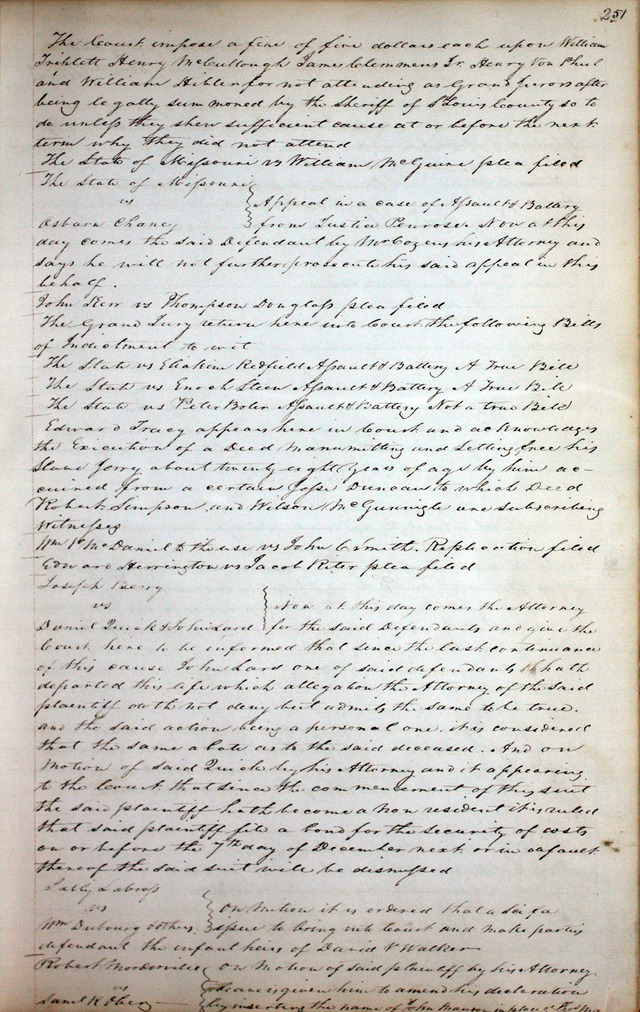 251
The Court impose a fine of five dollars each upon William
Triplett Henry McCullough James Clemmens Jr. Henry Von Phul
and William Hibler for not attending as Grand Jurors after
being legally summoned by the Sheriff of St Louis County so to
do unless they shew sufficient cause at or before the next
term why they did not attend
The State of Missouri vs William McGuire plea filed
The State of Missouri
vs
Appeal in a case of Assault & Battery
Osburn Chaney
from Justice Penrose. Now at this
day comes the said Defendant by Mr Cozens his Attorney and
says he will not further prosecute his said appeal in this
behalf.
John Kerr vs Thompson Douglass plea filed
The Grand Jury return here into Court the following Bills
of Indictment to wit
The State vs Eliakim Redfield Assault & Battery A True Bill
The State vs Enoch Steen Assault & Battery A True Bill
The State vs Peter Boler Assault & Battery Not a true Bill
Edward Tracy appears here in Court and acknowledges
the Execution of a Deed Manumitting and Setting free his
Slave Jerry about twenty eight years of age by him ac-
cuired from a certain Jesse Duncan to which Deed
Robert Simpson and Wilson McGunnigle are subscribing
witnesses
Wm McDaniel to the use vs John Smith. Replication filed
Edward Herrington vs Jacob plea filed
Joseph Berry
vs
Now at this day comes the Attorney
Daniel Quick & John Lard
for the said Defendants and give the
Court here to be informed that since the last continuance
of this cause John Lard one of said defendants hath
departed this life which allegation the Attorney of the said
plaintiff doth not deny but admits the same to be true.
and the said action being a personal one, it is considered
that the same abate as to the said deceased. And on
motion of said Quick by his Attorney and it appearing
to the Court that since the commencement of this suit
the said plaintiff hath become a non resident it is ruled
that said plaintiff file a bond for the security of costs
on or before the 7th day of December next or in default
thereof the said suit will be dismissed
vs
On motion it is ordered that a Sci fa
Wm Dubourg & others
issue to bring into Court and make parties
defendant the infant heirs of David V Walker
Robert
On motion of said plaintiff by his Attorney
vs
leave is given him to amend his declaration
by inserting the name of John in place of